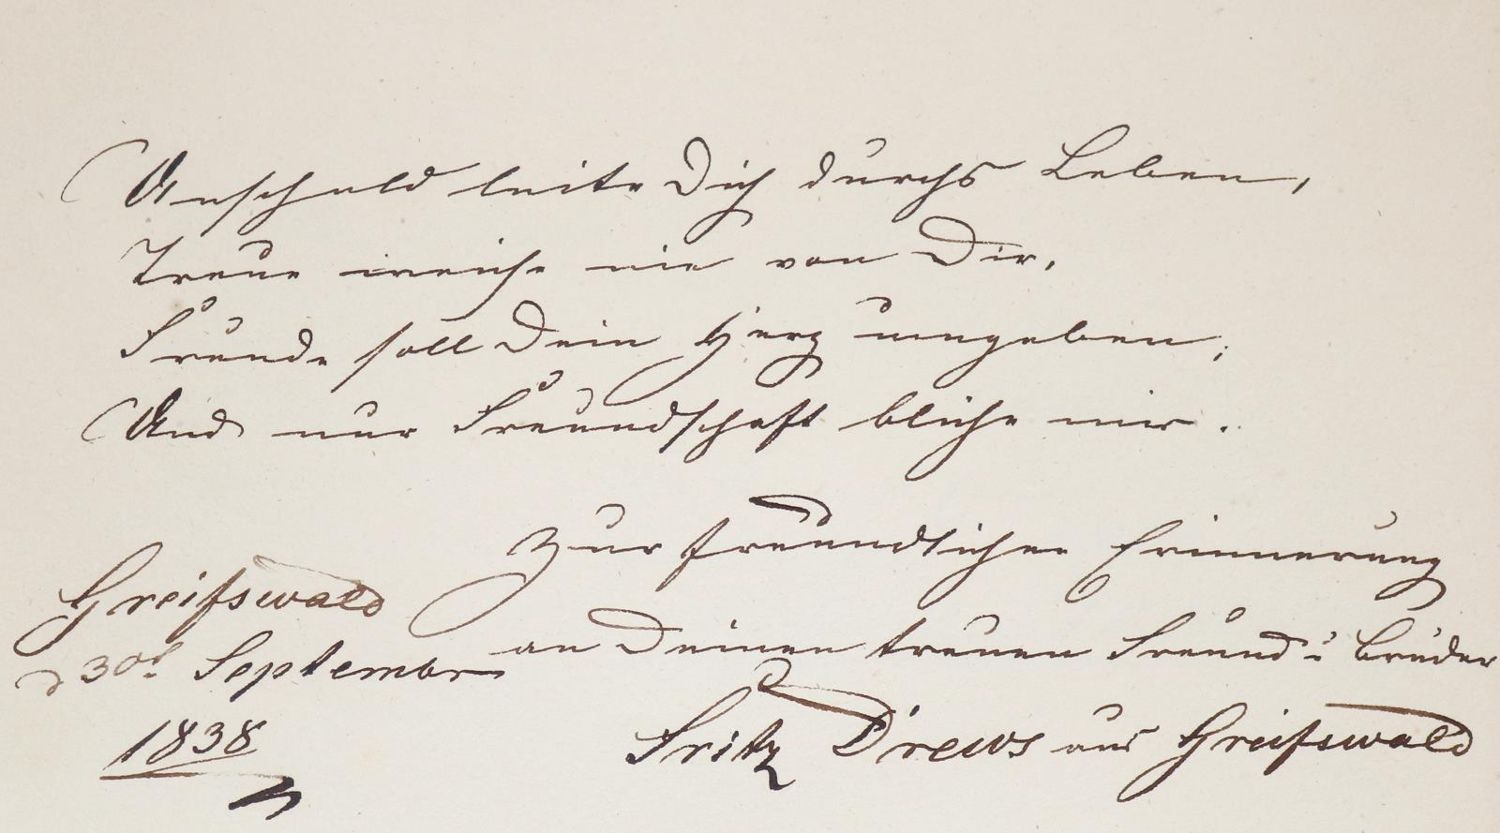 Unschuld leite Dich durchs Leben,
Treue weiche nie von Dir,
Freude soll Dein Herz umgeben;
Und nur Freundschaft blühe mir.
Zur freundlichen Erinnerung
an Deinen treuen Freund u Bruder
Fritz Drews aus Greifswald
Greifswald
d 30t. Septembr
1838